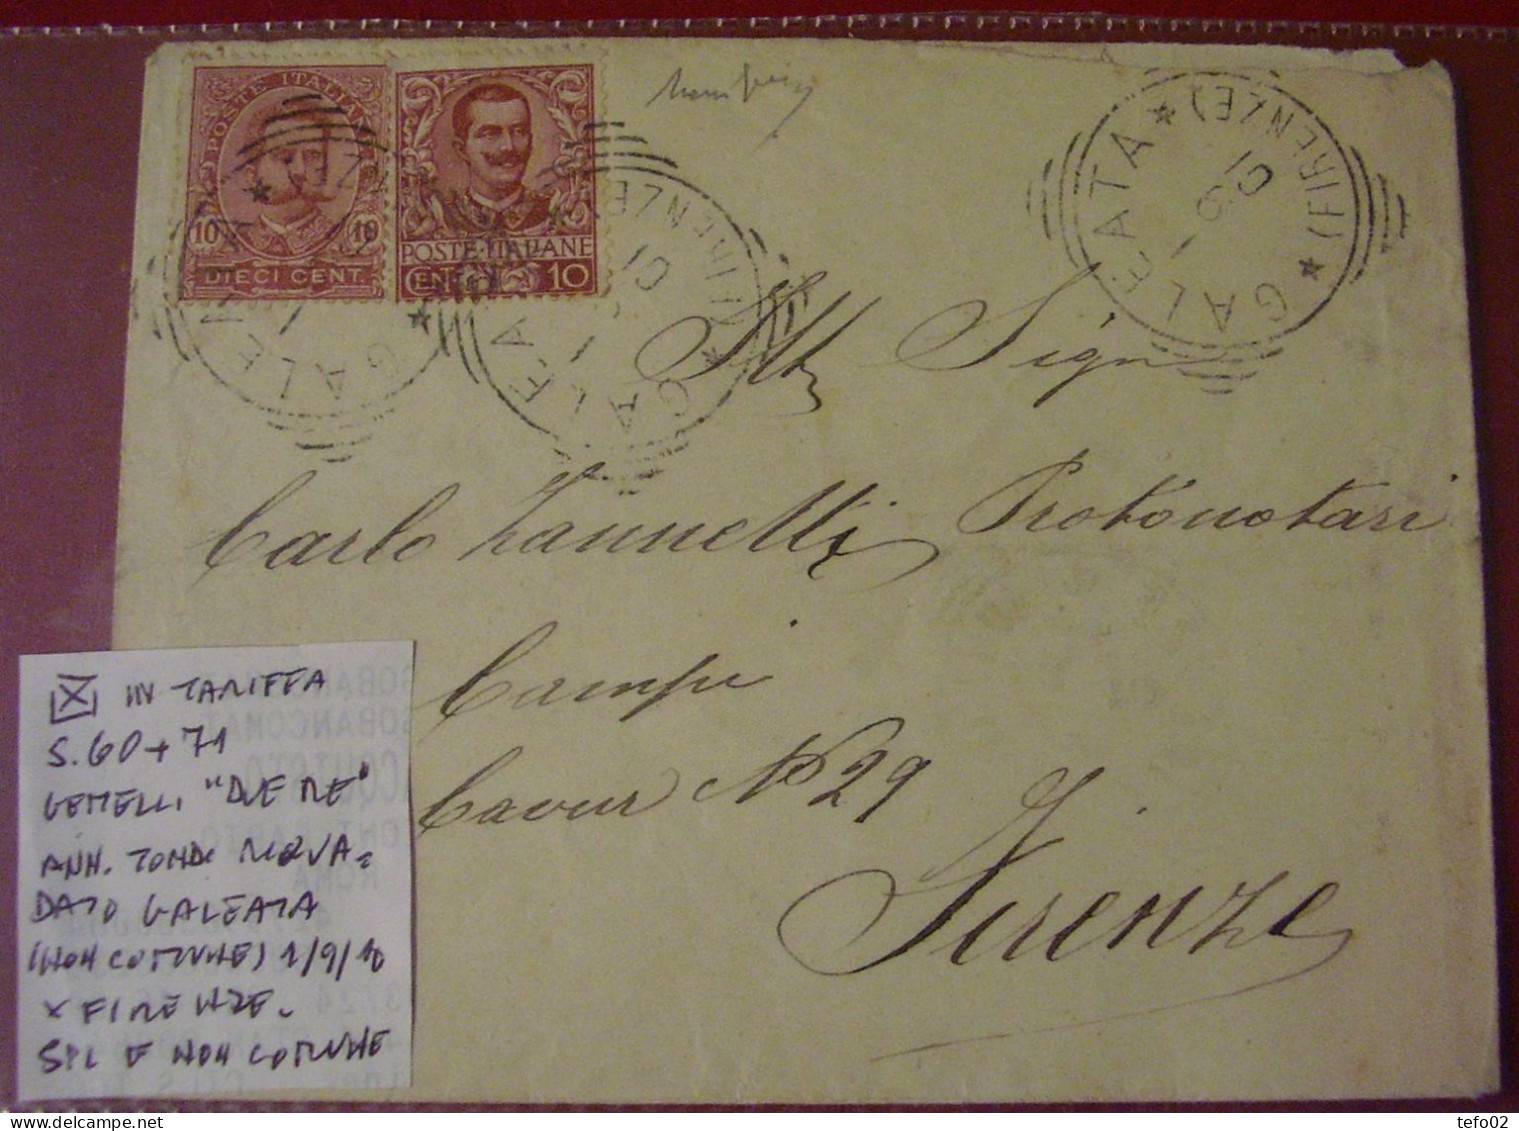 POSTE ITALIANE
10 10
DIECI CENT.
POSTE·ITALIANE
CENT 10
GALEATA
(FIRENZE)
GALEATA
(FIRENZE)
01
GALEATA
(FIRENZE)
Ill Sign
Carlo Zannetti Protonotari
Campi
Cavour No 29
Firenze
X IN TARIFFA
S. 60+71
GEMELLI "DUE RE"
ANN. TONDO RIQUA=
DATO GALEATA
(NON COMUNE) 1/9/10
X FIRENZE.
SPL E NON COMUNE
tefo02